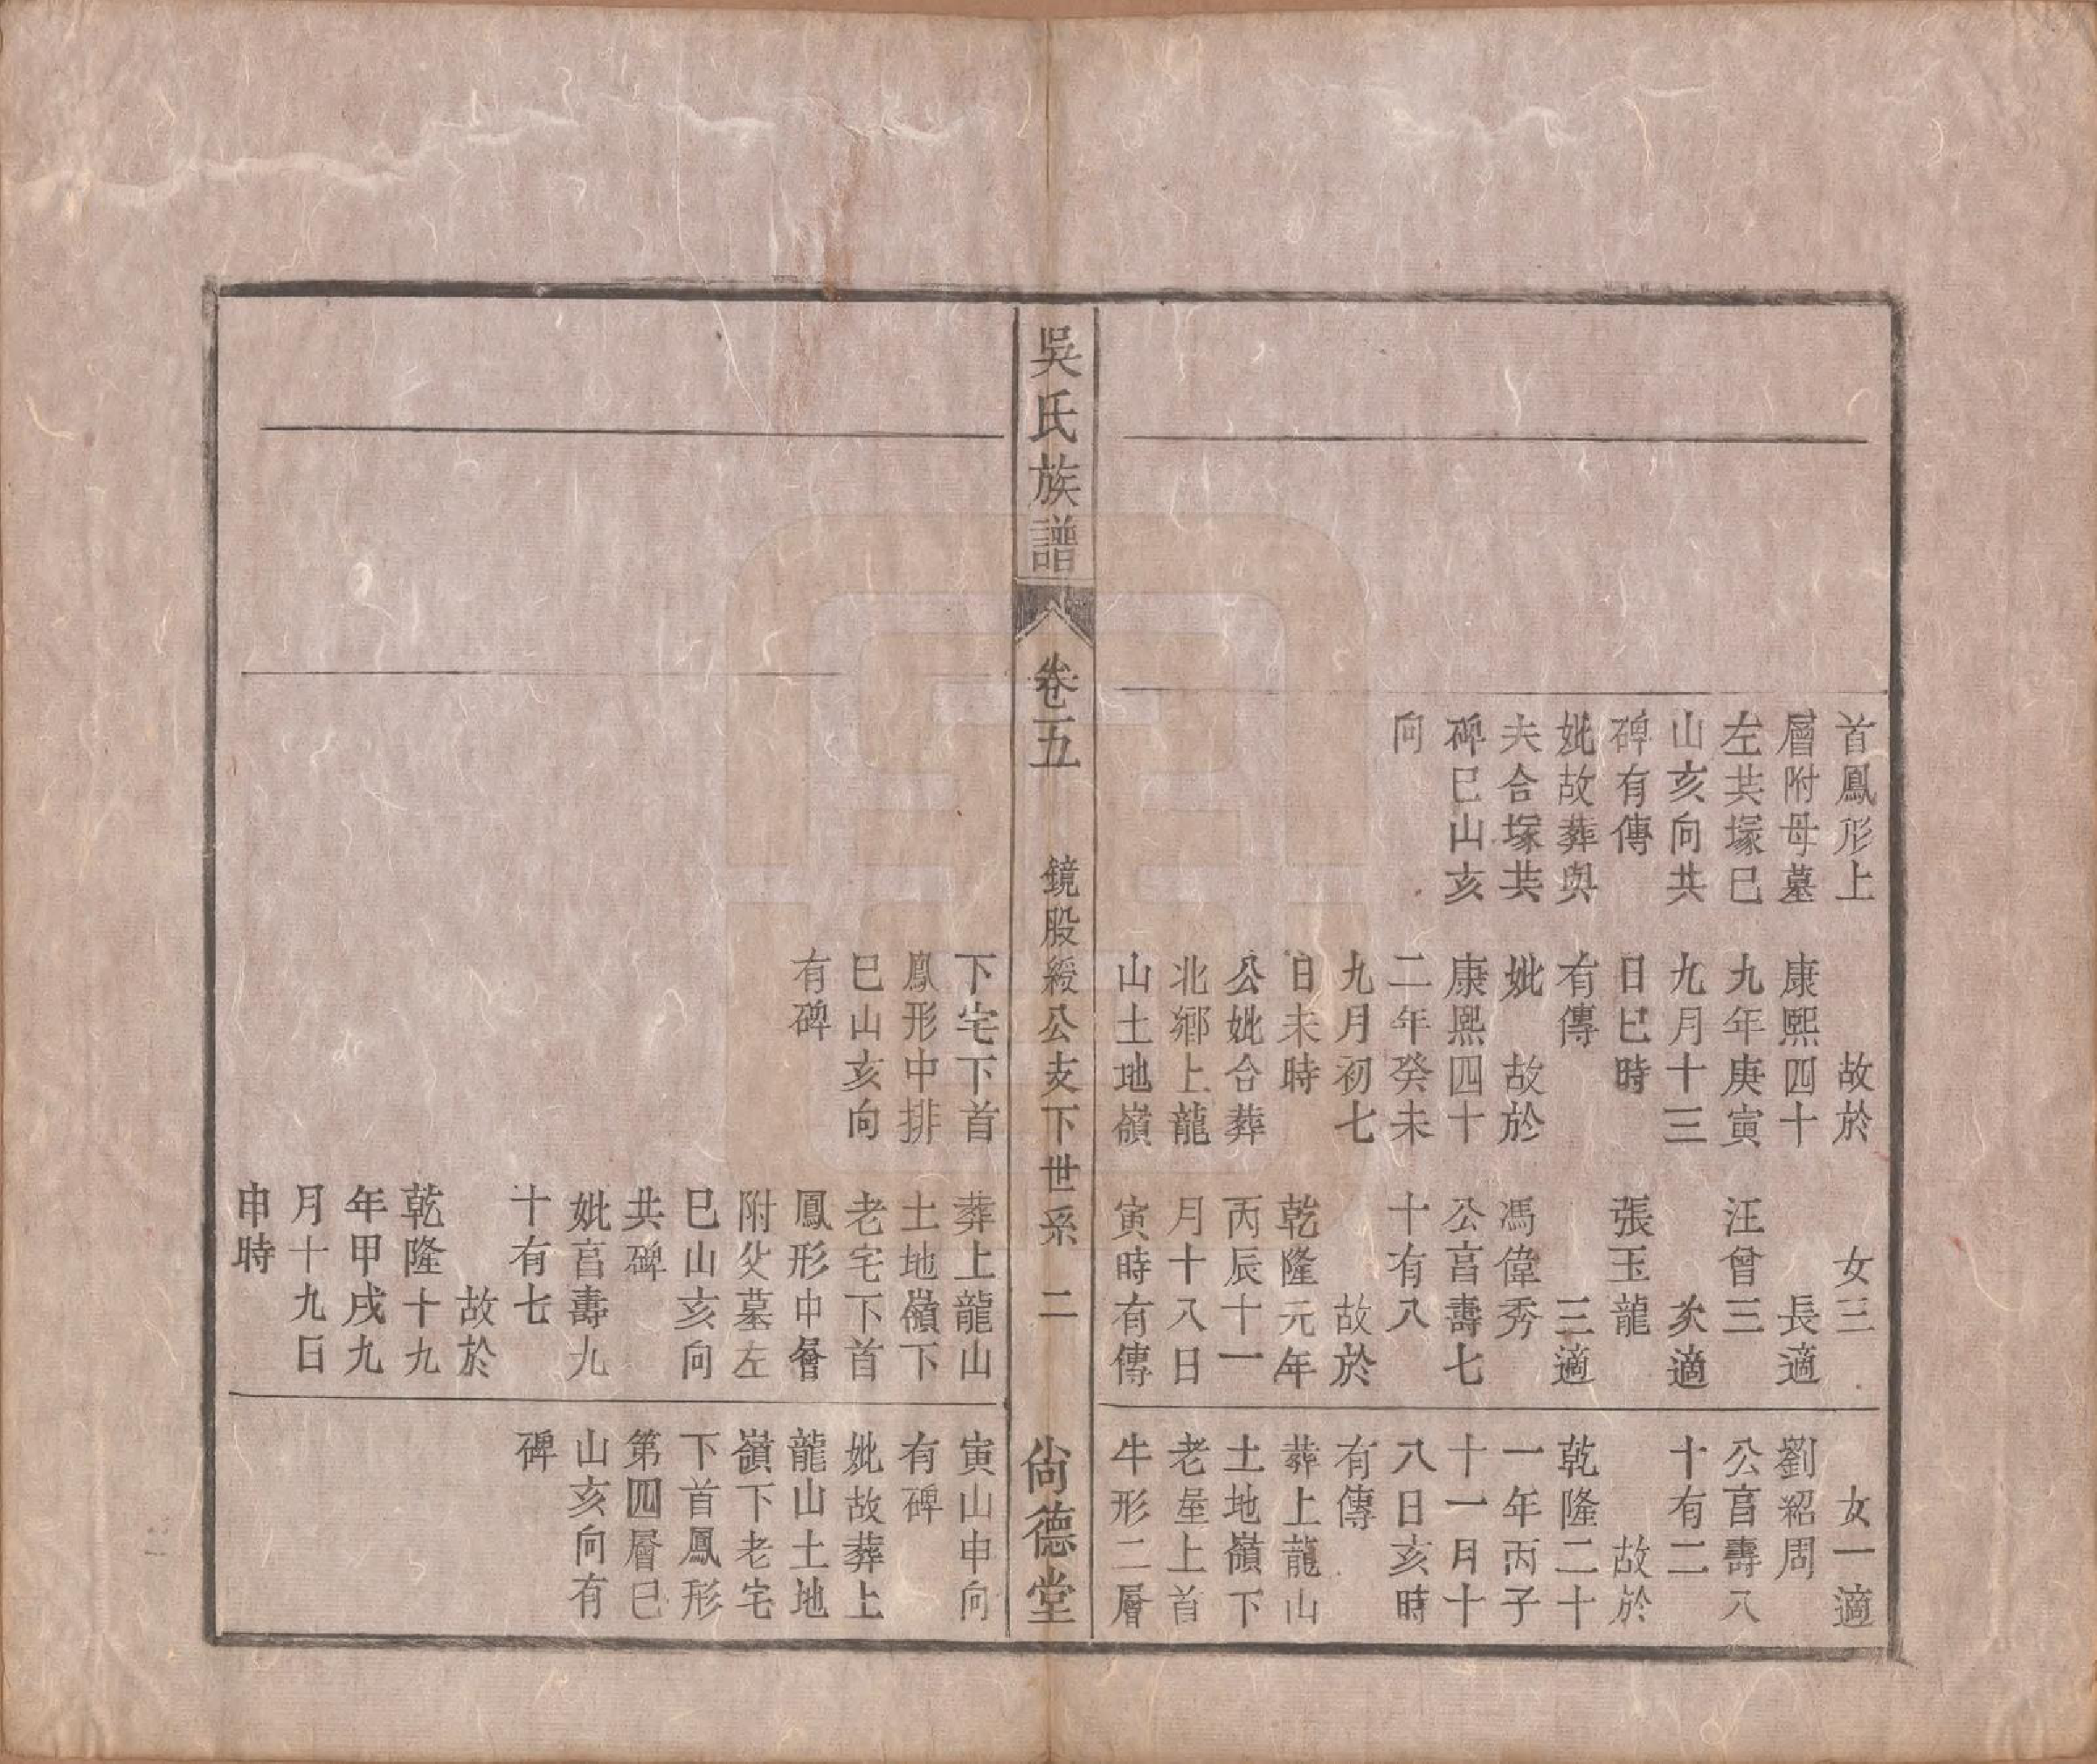 首鳳形上
層附母墓
左共塚巳
山亥向共
碑有傳
妣故葬與
夫合塚共
碑巳山亥
向
故於
康熙四十
九年庚寅
九月十三
日巳時
有傳
妣 故於
康熙四十
二年癸未
九月初七
日未時
公妣合葬
北鄉上龍
山土地嶺
女三
長適
汪曾三
次適
張玉龍
三適
馮偉秀
公言壽七
十有八
故於
乾隆元年
丙辰十一
月十八日
寅時有傳
女一適
劉紹周
公言壽八
十有二
故於
乾隆二十
一年丙子
十一月十
八日亥時
有傳
葬上龍山
土地嶺下
老屋上首
牛形二層
吳氏族譜
卷五
鏡股綬公支下世系 二
尙德堂
下宅下首
鳳形中排
巳山亥向
有碑
葬上龍山
土地嶺下
老宅下首
鳳形中層
附父墓左
巳山亥向
共碑
妣言壽九
十有七
故於
乾隆十九
年甲戌九
月十九日
申時
寅山申向
有碑
妣故葬上
龍山土地
嶺下老宅
下首鳳形
第四層巳
山亥向有
碑